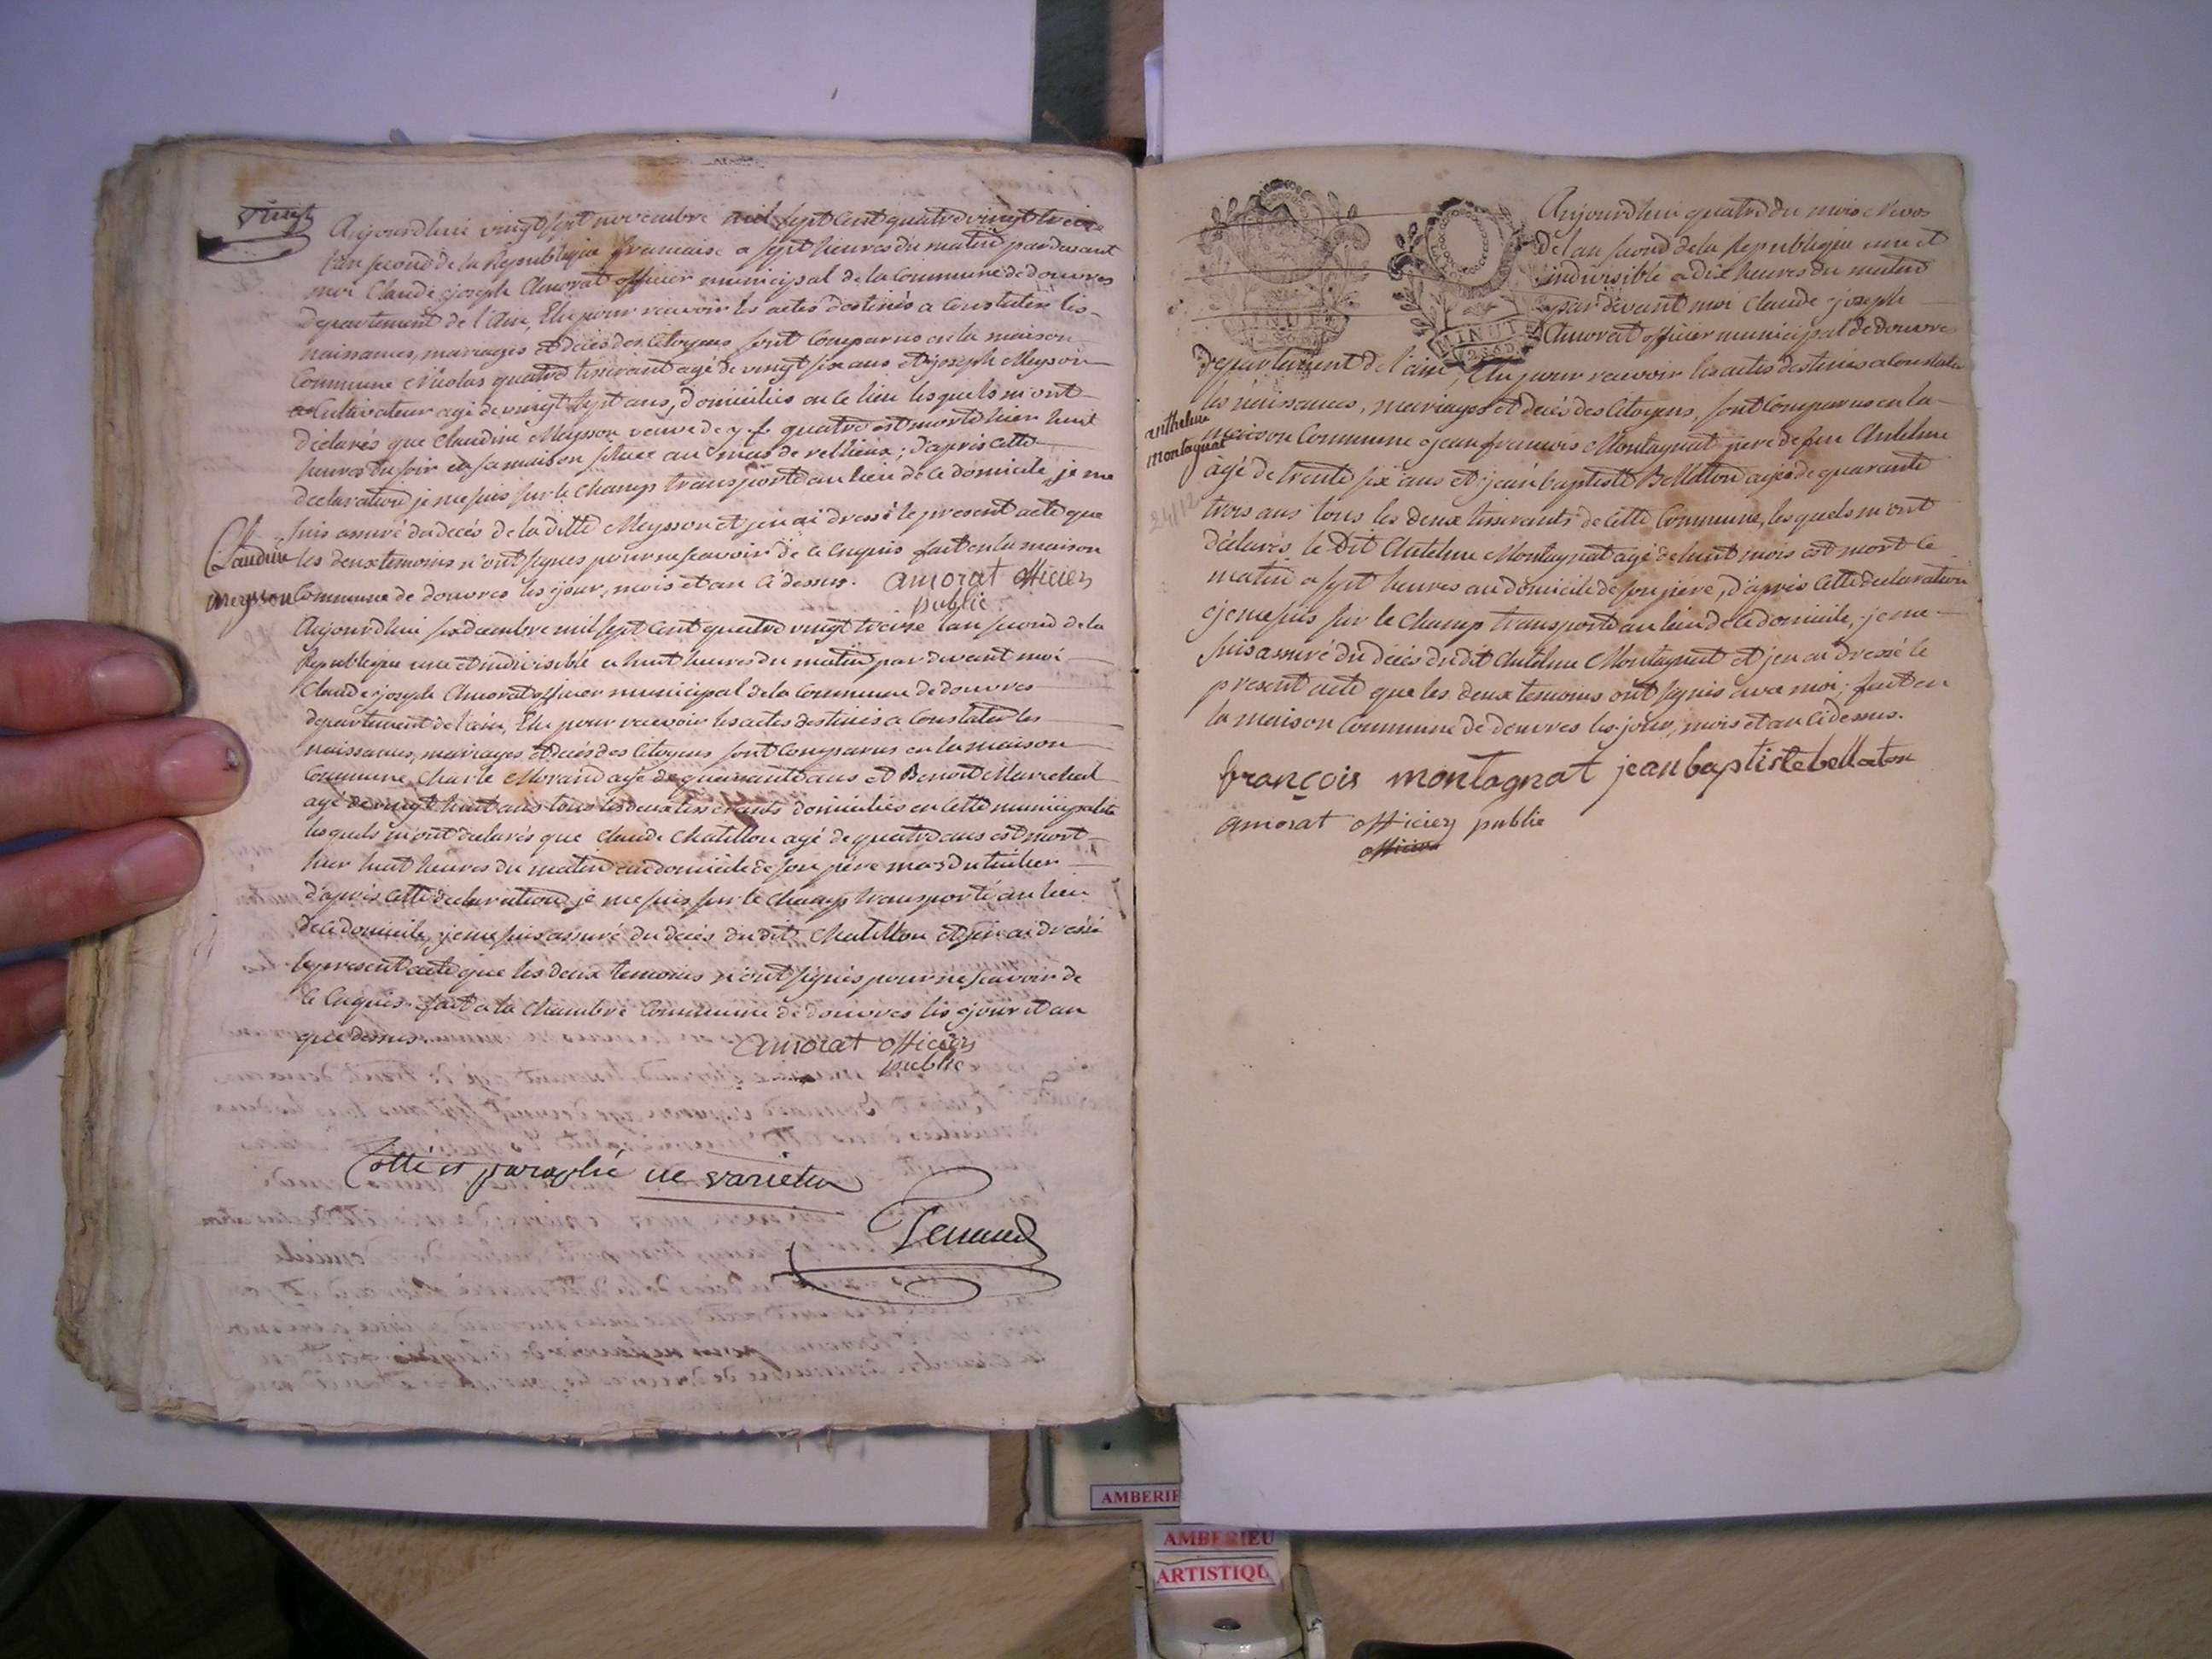 vingt
Aujourdhui vingt sept novembre mil sept Cent quatre vingt treize
l'an second de la République francaise a sept heures du matin pardevant
moi Claude joseph Amorat officier municipal de la Commune de douvres
departement de l'Ain, Elu pour recevoir les actes destinés a Constater les
naissances, mariages et décès des Citoyens sont Comparus en la maison
Commune Nicolas quatre tisserant agé de vingt six ans et joseph Meysson
Cultivateur agé de vingt sept ans, domiciliés en ce lieu lesquels m'ont
déclarés que Claudine Meysson veuve de quatre est morte hier huit
heures du soir en sa maison située au mas de ; d'après cette
declaration je me suis sur le Champ transporté au lieu de ce domicile, je me
suis assuré du decés de la ditte Meysson et j'en ai dressé le present acte que
Claudine
les deux temoins n'ont signés pour ne scavoir de ce enquis fait en la maison
meysson
Commune de douvres les jour, mois et an ci dessus. amorat officier
public
Aujourdhui six decembre mil sept Cent quatre vingt treize lan second de la
Republique une et indivisible a huit heures du matin par devant moi
Claude joseph Amorat officier municipal de la Commune de douvres
departement de l'ain, Elu pour recevoir les actes destinés a Constater les
naissances, mariages et decés des Citoyens sont Comparus en la maison
Commune, Charle Morand agé de quarante ans et Benoit Marechal
agé de vingt huit ans tous les deux tisserants domiciliés en cette municipalité
lesquels m'ont declarés que Claude Chatillon agé de quatre ans est mort
hier huit heures du matin au domicile de son pere mas du
d'après cette declaration je me suis sur le Champ transporté au lieu
de ce domicile, je me suis assuré du decés du dit Chatillon et j'en ai dressé
le present acte que les deux temoins n'ont signés pour ne scavoir de
ce enquis. fait a la Chambre Commune de douvres les jour et an
que dessus. amorat officier
public
Cotté et paraphé ne varietur
Aujourdhui quatre du mois Nivos
de l'an second de la Republique une et
indivisible a dix heures du matin
par devant moi Claude joseph
Amorat officier municipal de douvres
MINUTE
MINUTE
departement de l'ain, Elu pour recevoir les actes destinés a Constater
les naissances, mariages et decés des Citoyens, sont Comparus en la
anthelme
montagnat
maison Commune jean francois Montagnat pere de feu Antelme
agé de trente six ans et jean baptiste Bellaton agé de quarante
24/12
trois ans tous les deux tisserants de cette Commune, lesquels m'ont
déclarés le dit Antelme Montagnat agé de huit mois est mort ce
matin a sept heures au domicile de son pere, d'après cette declaration
je me suis sur le Champ transporté au lieu de ce domicile, je me
suis assuré du décès du dit Antelme Montagnat et j'en ai dressé le
present acte que les deux temoins ont signés avec moi; fait en
la maison Commune de douvres les jour, mois et an ci dessus.
françois montagnat jean baptiste bellaton
amorat officier public
officier
AMBERIE
AMBERIEU
ARTISTIQU